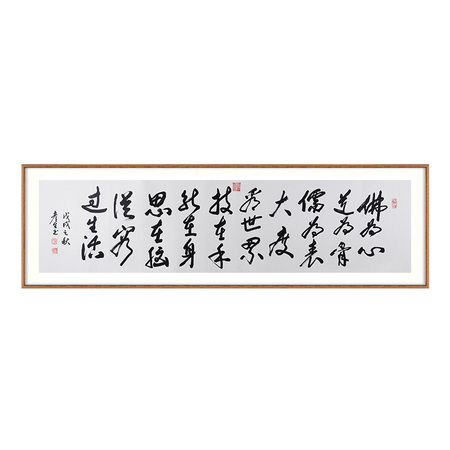 佛為心
道為骨
儒為表
大度
看世界
技在手
能在身
思在腦
從容
過生活
戊戌之秋